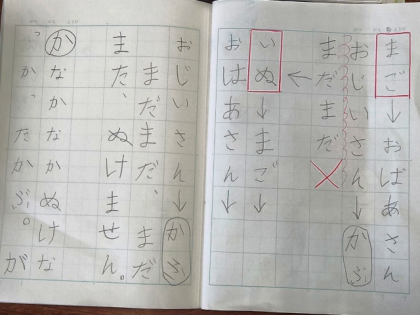 まご↓おばあさん
おじいさん↓かぶ
まだまだ
←
いぬ↓まご↓
おはあさん↓
おじいさん↓かぶ
まだまだ、まだ
また、ぬけません。
かなかなかぬけな
か、たかぶ。が